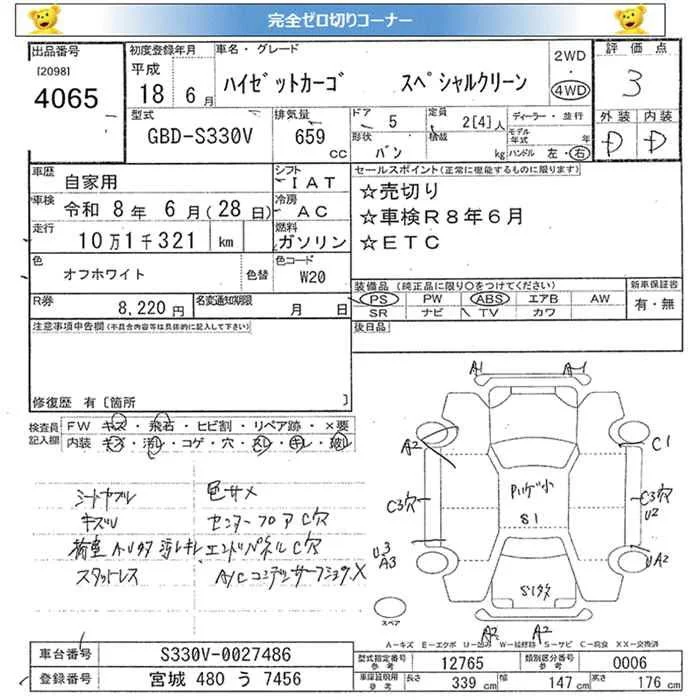 完全ゼロ切りコーナー
出品番号
[2098]
4065
初度登録年月
平成
18 6月
車名・グレード
ハイゼットカーゴ スペシャルクリーン
2WD
・
4WD
評価点
3
外装 内装
D D
型式
GBD-S330V
排気量
659
CC
ドア 5
形状 バン
定員 2[4]人
積載 kg
ディーラー・並行
モデル年式 年
ハンドル 左・右
車歴
自家用
シフト
IAT
車検 令和 8年 6月(28日)
冷房
AC
走行
10万1千321 km
燃料
ガソリン
色
オフホワイト
色替
色コード
W20
R券
8,220円
名変通知期限
月 日
セールスポイント(正常に機能するものに限ります)
☆売切り
☆車検R8年6月
☆ETC
装備品(純正品に限り〇をつけてください)
PS PW ABS エアB AW
SR ナビ TV カワ
新車保証書
有・無
後日品
注意事項申告欄(不具合内容等は具体的に記入して下さい)
修復歴 有[箇所 ]
検査員記入欄
FW キズ・飛石・ヒビ割・リペア跡・×要
内装 キズ・汚レ・コゲ・穴・スレ・キレ・破レ
シートヤブレ 色サメ
キズU センターフロアC穴
エンドパネルC穴
スタットレス
A1 A1
A2
C1
C3穴
C3穴
U2
S1
U3
A3
UA2
A2 A2
スペア
A-キズ E-エクボ U-凹み W-補修跡 S-サビ C-腐食 XX-交換済
車台番号 S330V-0027486
登録番号 宮城 480 う 7456
型式指定番号
参考
12765
類別区分番号
参考
0006
車庫証明用
参考
長さ 339cm
幅 147cm
高さ 176cm